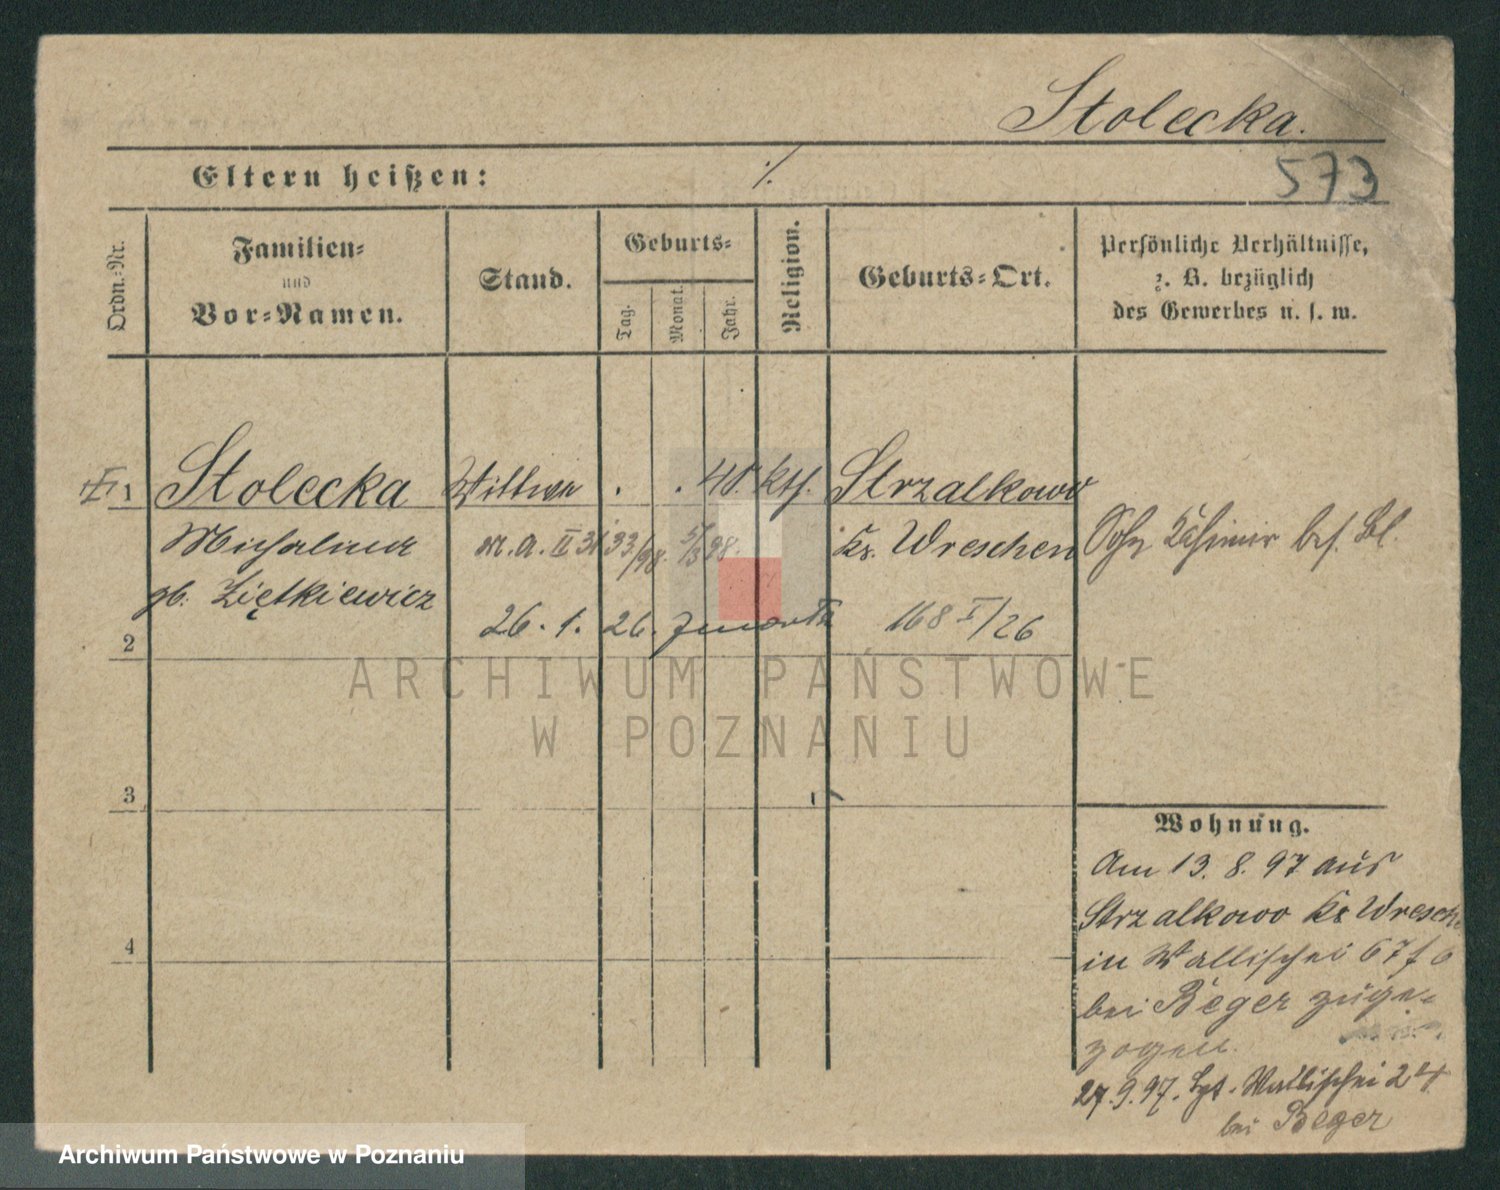 Stolecka.
573
Eltern heißen: ./.
Ordn.-Nr.
Familien-
und
Vor-Namen.
Stand.
Geburts-
Tag.
Monat.
Jahr.
Religion.
Geburts-Ort.
Persönliche Verhältnisse,
z. B. bezüglich
des Gewerbes u. s. w.
1 Stolecka Wittwe . . 40. kth. Strzalkowo
Michalina
gb. Ziętkiewicz
m. A. II 3193/98. 5/3 98.
Kr. Wreschen
Sohn Casimir bes. Bl.
2 26. 1. 26. zmarła 168 I/26
3
4
Wohnung.
Am 13. 8. 97 aus
Strzalkowo Kr Wresch
in Wallischei 67/6
bei Beger zuge-
zogen.
27. 9. 97. Wallischei 24
bei Beger
ARCHIWUM PAŃSTWOWE
W POZNANIU
Archiwum Państwowe w Poznaniu